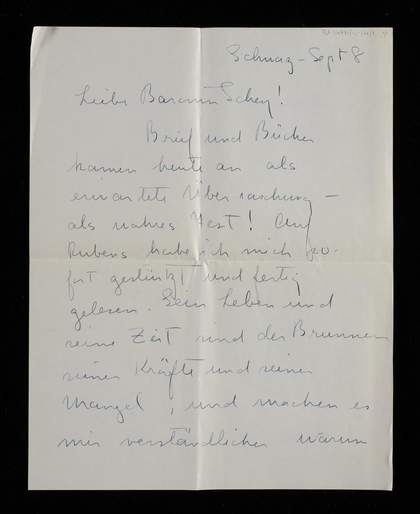 Schruaz - Sept 8
Liebe Baronin Schey!
Brief und Bücher
kamen heute an als
erwartete Überraschung –
als wahres Fest! Auf
Rubens habe ich mich so-
fort gestürzt und fertig
gelesen. Sein Leben und
seine Zeit sind der Brunnen
seiner Kräfte und seiner
Mängel, und machen es
mir verständlicher warum